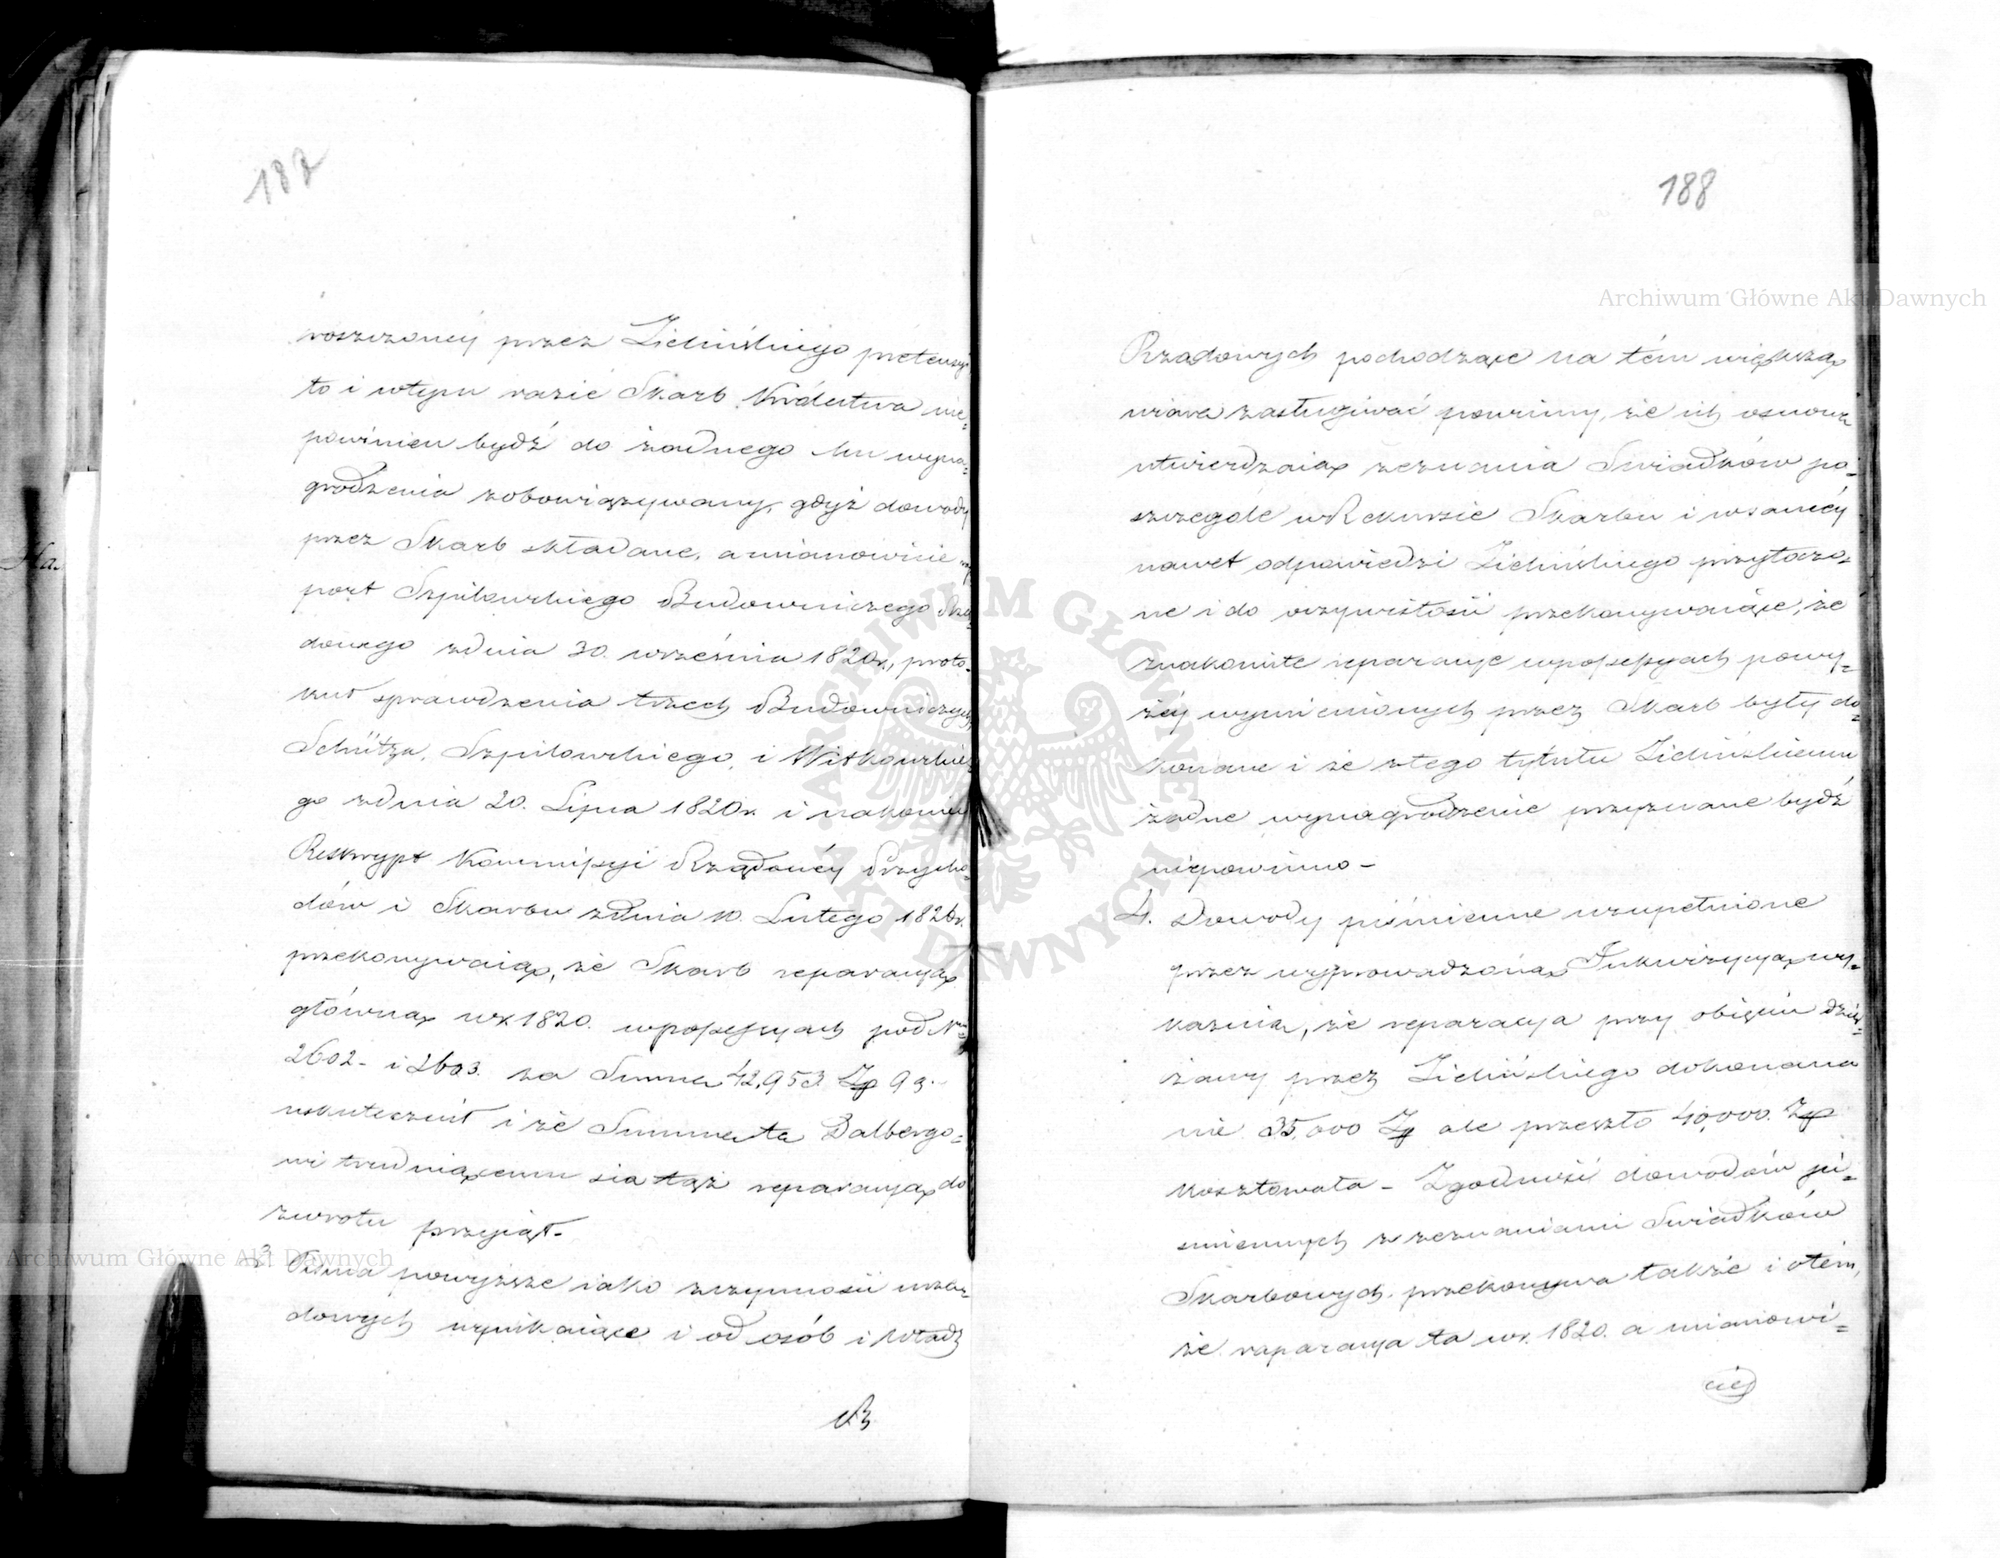 187
roszczonéy przez Zielińskiego pretensyi,
to i wtym razie Skarb Królestwa nie
powinien bydź do żadnego mu wyna-
grodzenia zobowiązywany, gdyż dowody
przez Skarb składane, a mianowicie
port Szpilowskiego Budowniczego Rzą-
dowego zdnia 30. września 1820 r., proto-
kuł sprawdzenia trzech Budowniczych
Schütza, Szpilowskiego, i Witkowskie-
go zdnia 20. Lipca 1820 r. i nakoniec
Reskrypt Kommissyi Rządowéy Przycho-
dów i Skarbu zdnia 10. Lutego
przekonywaią, że Skarb reparacyą
główną w r. 1820. wpossessyach pod Nrm
2602 - i 2603. za Summę 42,953. Zp 9 g.
uskutecznił i że Summę tę Dalbergo-
wi trudniącemu się tąż reparacyą do
zwrotu przyiął.
3. Pisma powyższe iako z czynności urzę-
dowych wynikaiące i od osób i Władz
Rz
188
Rządowych pochodzące na tém większą
wiarę zasługiwać powinny, że ich osnowę
utwierdzaią zeznania Swiadków po-
szczególe w Rekursie Skarbu i wsaméy
nawet odpowiedzi Zielińskiego przytoczo-
ne i do oczywistości przekonywaiące, że
znakomite reparacye wpossessyach powy-
żéy wymienionych przez Skarb były do-
konane i że ztego tytułu Zielińskiemu
żadne wynagrodzenie przyznane bydź
niepowinno -
4. Dowody piśmienne uzupełnione
przez wyprowadzoną Inkwizycyą wy-
kazuią, że reparacya przy obięciu dzier-
żawy przez Zielińskiego dokonana
nie 35,000 Zp ale przeszło 40,000. Zp
kosztowała - Zgodność dowodów pi-
śmiennych z zeznaniami Swiadków
Skarbowych. przekonywa także i otém,
że reparacya ta w r. 1820. a mianowi-
cie
Archiwum Główne Akt Dawnych
Archiwum Główne Akt Dawnych
ARCHIWUM GŁÓWNE AKT DAWNYCH